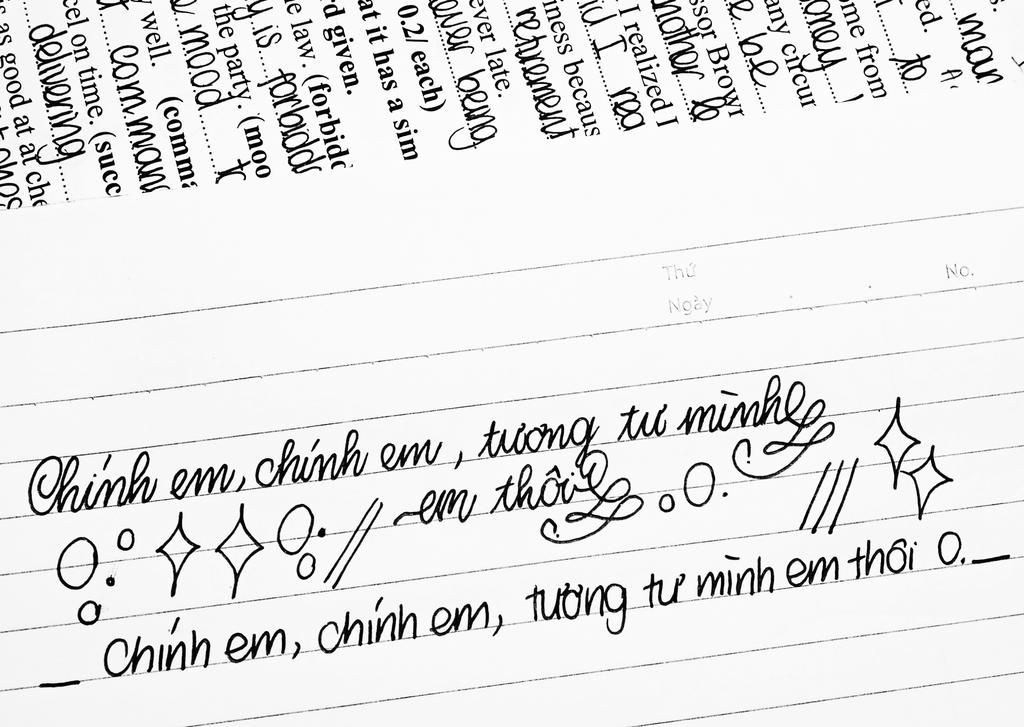 s. man
ed. to
ome from
oney
any circur
e be
ssor Brown
nother to
I realized I
nd I rea
iness becaus
retirement
ever late.
ever being
0.2/ each)
at it has a sim
rd given.
e law. (forbidd
y is forbidd
the party. (moo
mood
y well. (comma
t comman
cel on time. (succ
delivering
as good at at che
Thứ No.
Ngày
Chính em, chính em, tương tư mình
em thôi
_ Chính em, chính em, tương tư mình em thôi 0._